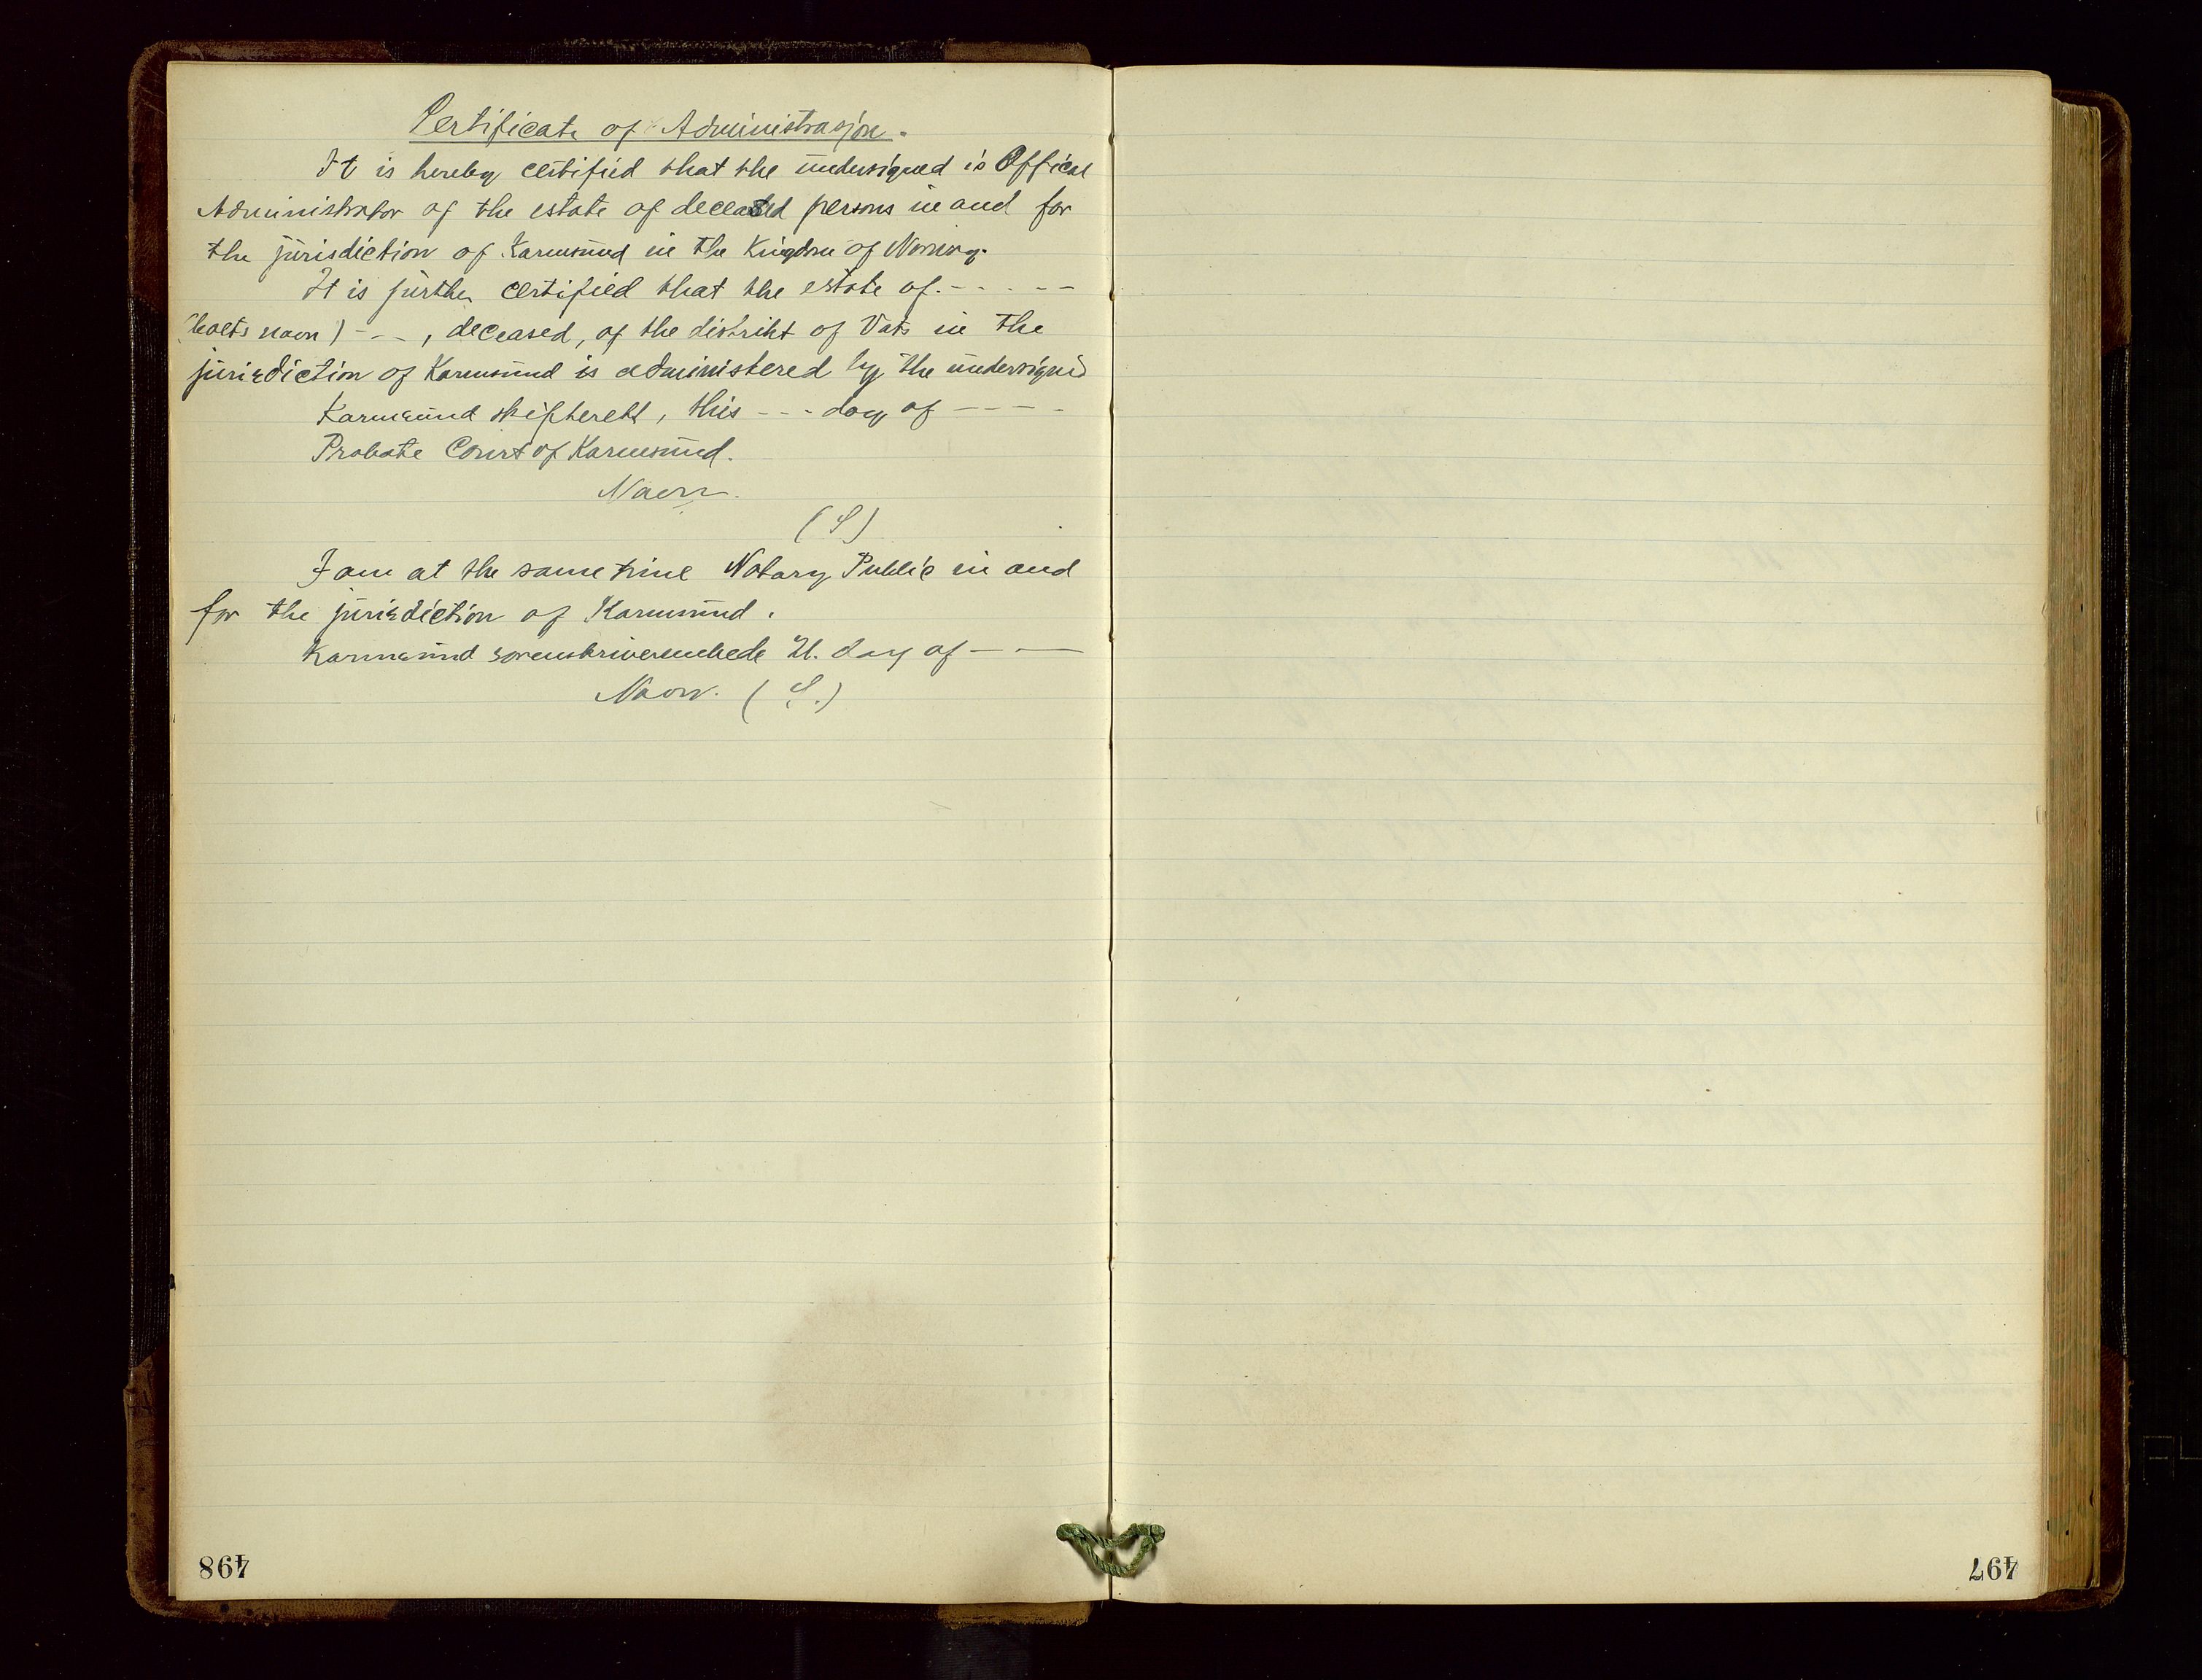 Certificate of Administrasjon.
It is hereby certified that the undersigned is Offical
Administrator of the estate of deceased persons in and for
the jurisdiction of Karmsund in the Kingdom of Norway.
It is further certified that the estate of - - - - -
navn) - - -, deceased, of the distrikt of Vats in the
jurisdiction of Karmsund is administered by the undersigned
Karmsund skifterett, this - - - day of - - - -
Probate Court of Karmsund.
Navn.
(S)
I am at the same time Notary Public in and
for the jurisdiction of Karmsund.
Karmsund sorenskriverembede 21. day of - - -
Navn. (S.)
498
497